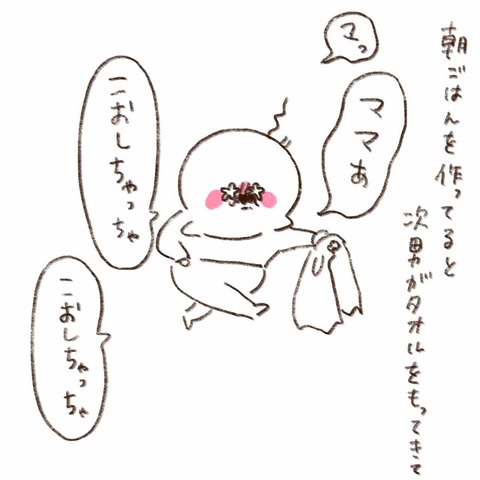 朝ごはんを作ってると
次男がタオルをもってきて
マっ
ママぁ
こおしちゃっちゃ
こおしちゃっちゃ